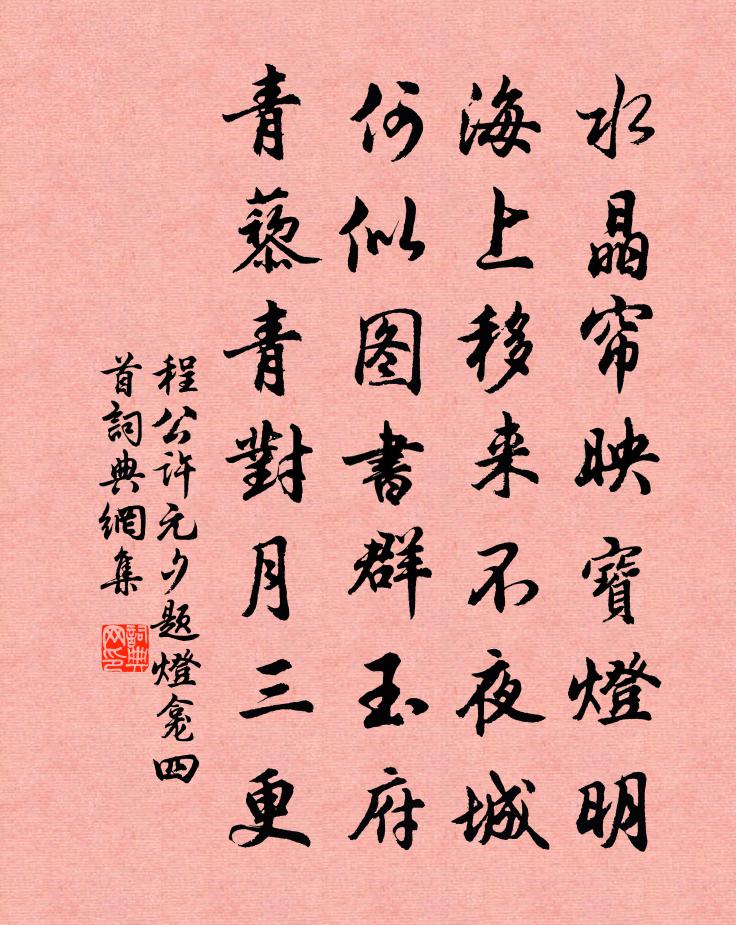 水晶帘映寶燈明
海上移来不夜城
何似图書群玉府
青藜青對月三更
程公許元夕题燈龛四
首詞典網集
詞典
网印